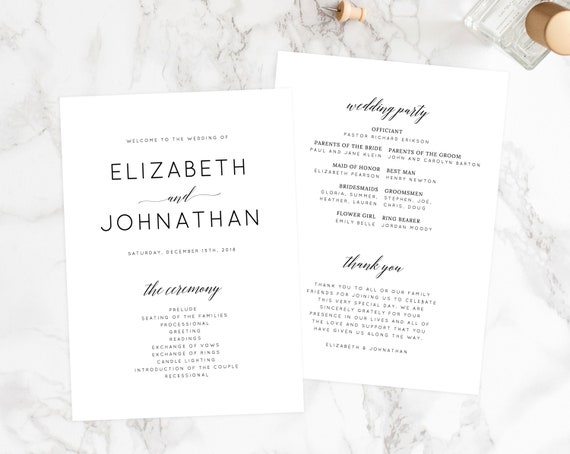 WELCOME TO THE WEDDING OF
ELIZABETH
and
JOHNATHAN
SATURDAY, DECEMBER 15TH, 2018
the ceremony
PRELUDE
SEATING OF THE FAMILIES
PROCESSIONAL
GREETING
READINGS
EXCHANGE OF VOWS
EXCHANGE OF RINGS
CANDLE LIGHTING
INTRODUCTION OF THE COUPLE
RECESSIONAL
wedding party
OFFICIANT
PASTOR RICHARD ERIKSON
PARENTS OF THE BRIDE PARENTS OF THE GROOM
PAUL AND JANE KLEIN JOHN AND CAROLYN BARTON
MAID OF HONOR BEST MAN
ELIZABETH PEARSON HENRY NEWTON
BRIDESMAIDS GROOMSMEN
GLORIA, SUMMER, STEPHEN, JOE,
HEATHER, LAUREN CHRIS, DOUG
FLOWER GIRL RING BEARER
EMILY BELLE JORDAN MOODY
thank you
THANK YOU TO ALL OF OUR FAMILY
FRIENDS FOR JOINING US TO CELEBRATE
THIS VERY SPECIAL DAY. WE ARE
SINCERELY GRATELY FOR YOUR
PRESENCE IN OUR LIVES AND ALL OF
THE LOVE AND SUPPORT THAT YOU
HAVE GIVEN US ALONG THE WAY.
ELIZABETH & JOHNATHAN